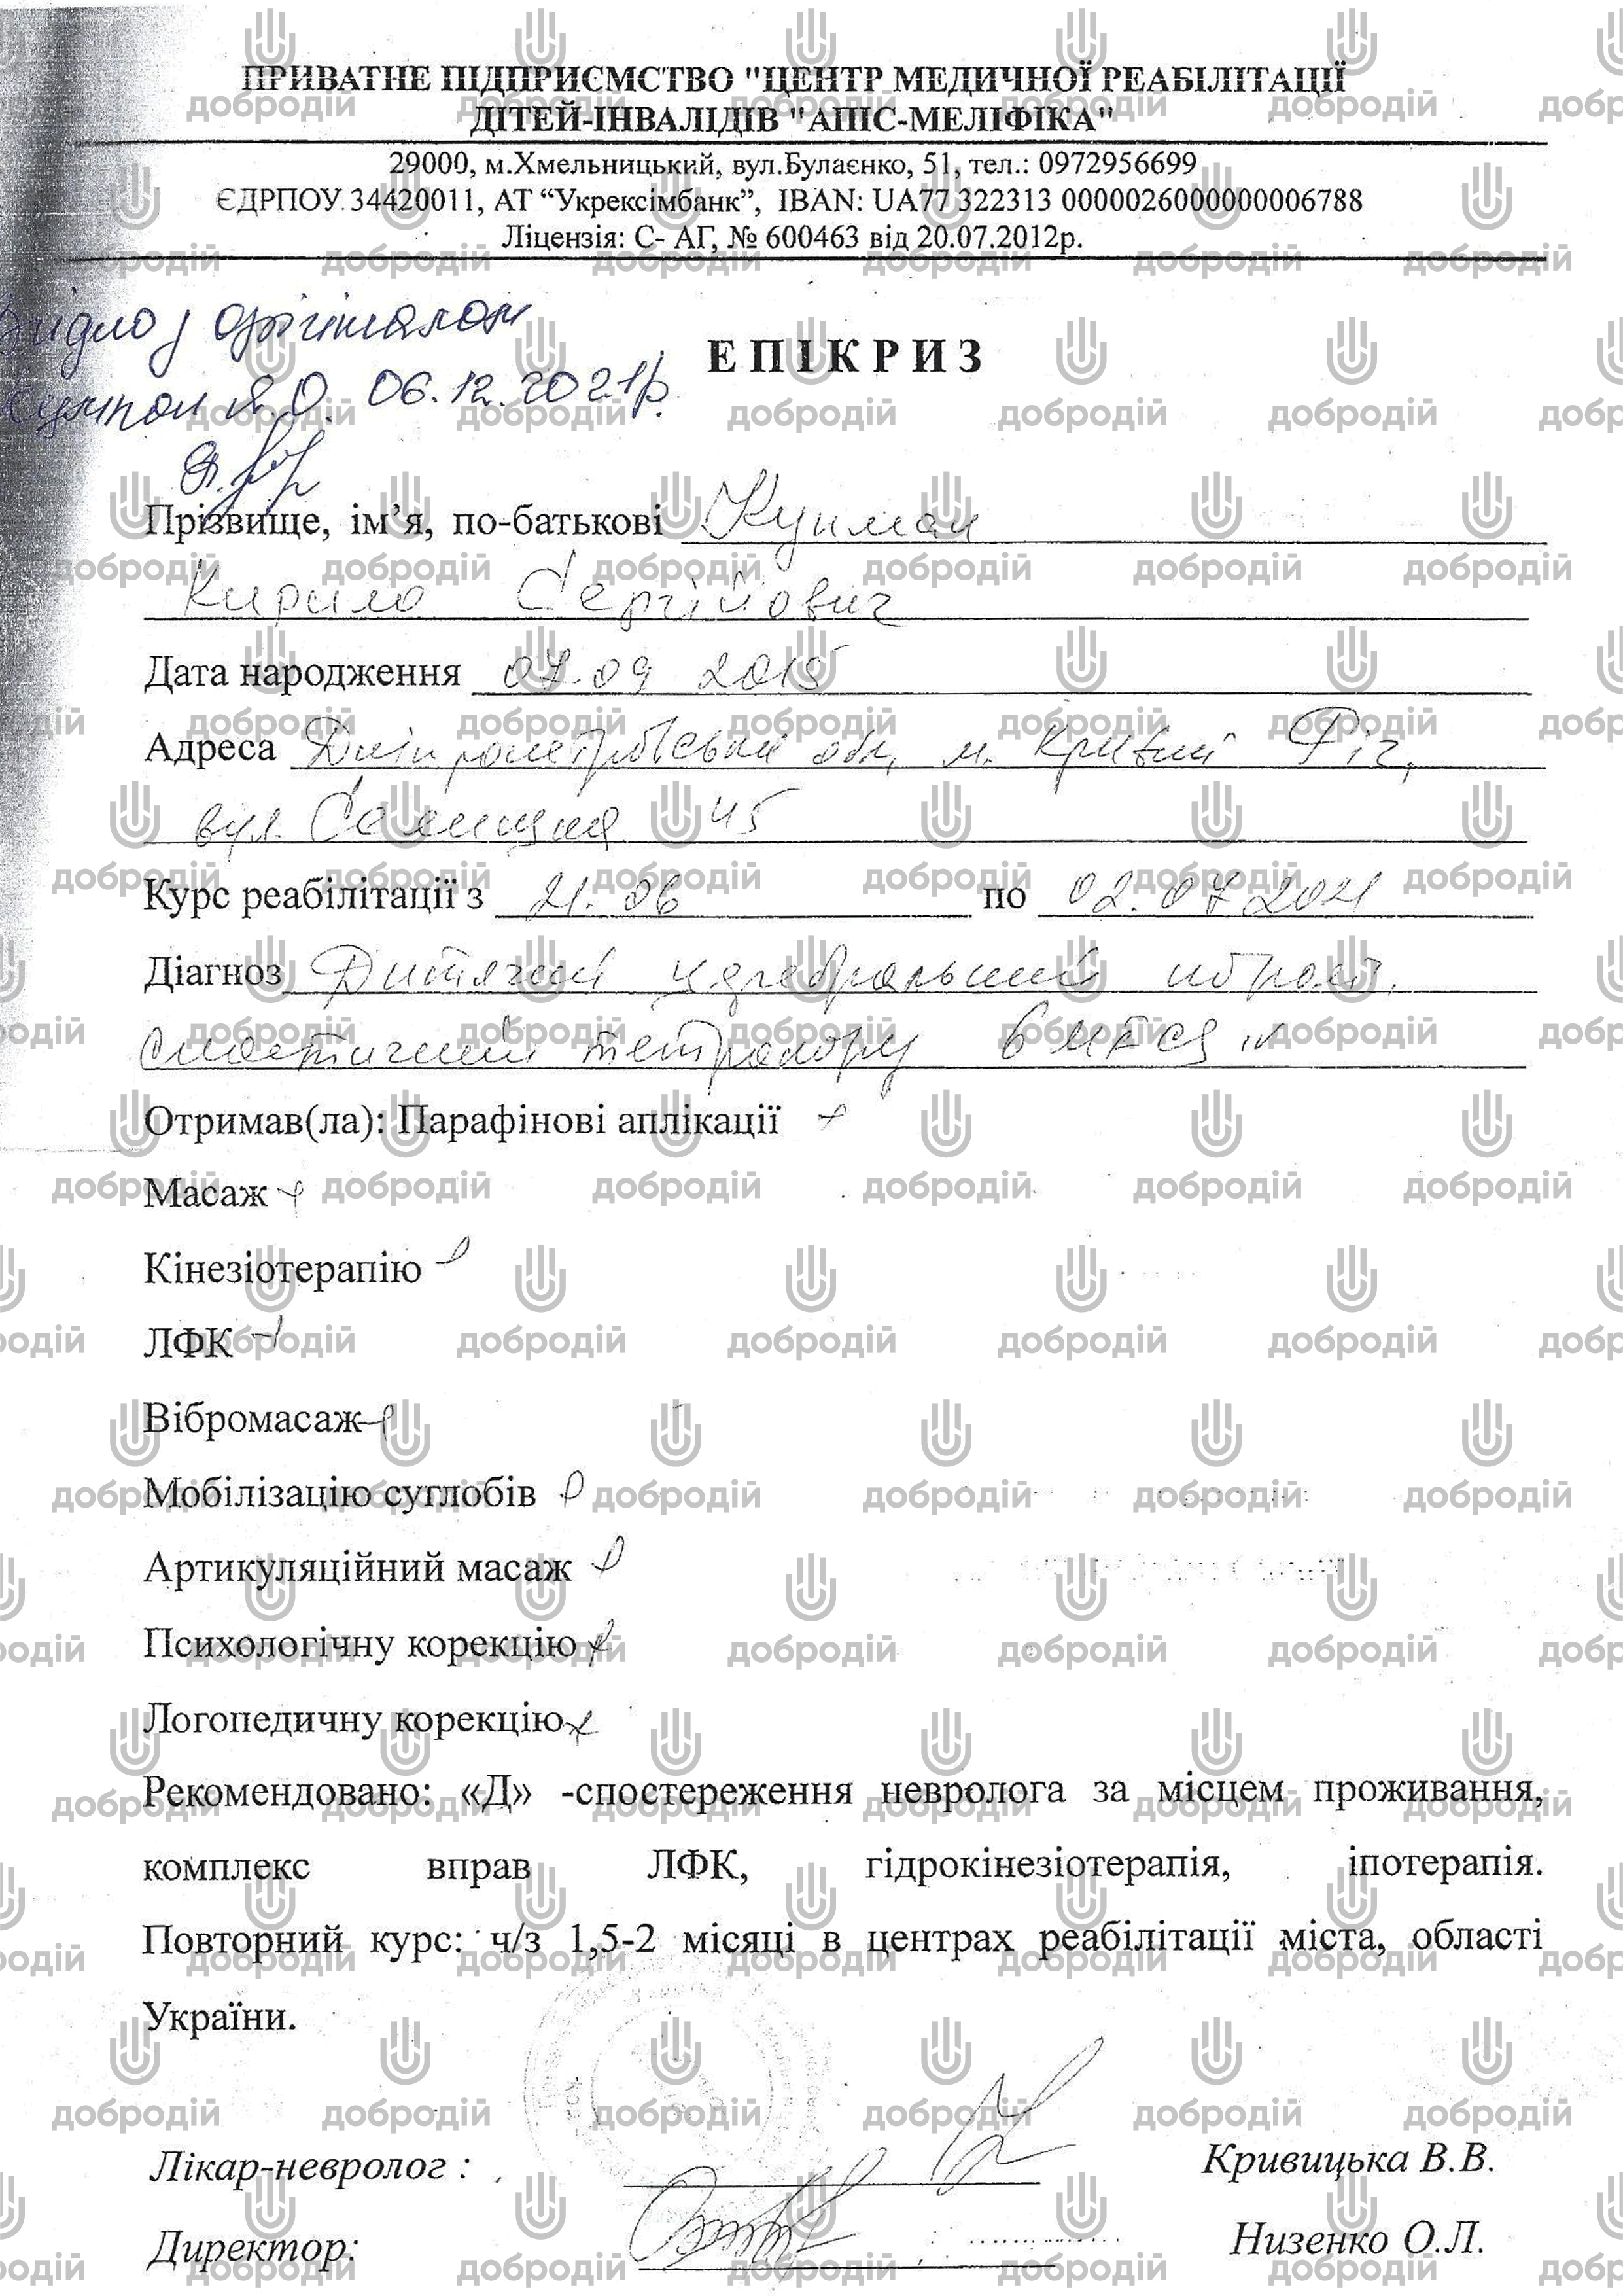 ПРИВАТНЕ ПІДПРИЄМСТВО "ЦЕНТР МЕДИЧНОЇ РЕАБІЛІТАЦІЇ
ДІТЕЙ-ІНВАЛІДІВ "АПІС-МЕЛІФІКА"
29000, м.Хмельницький, вул.Булаєнко, 51, тел.: 0972956699
ЄДРПОУ 34420011, АТ “Укрексімбанк”, IBAN: UA77 322313 0000026000000006788
Ліцензія: С- АГ, № 600463 від 20.07.2012р.
Згідно з оригіналом
Я.О. 06.12.2021р.
ЕПІКРИЗ
Прізвище, ім’я, по-батькові
Кирило Сергійович
Дата народження 07.09 2015
Адреса Дніпропетровська обл, м. Кривий Ріг,
вул. 45
Курс реабілітації з 21.06 по 02.07 2021
Діагноз Дитячий церебральний параліч,
спастичний тетрапарез GMFCS IV
Отримав(ла): Парафінові аплікації +
Масаж +
Кінезіотерапію +
ЛФК +
Вібромасаж +
Мобілізацію суглобів +
Артикуляційний масаж +
Психологічну корекцію +
Логопедичну корекцію +
Рекомендовано: «Д» -спостереження невролога за місцем проживання,
комплекс вправ ЛФК, гідрокінезіотерапія, іпотерапія.
Повторний курс: ч/з 1,5-2 місяці в центрах реабілітації міста, області
України.
Лікар-невролог : Кривицька В.В.
Директор: Низенко О.Л.
добродій